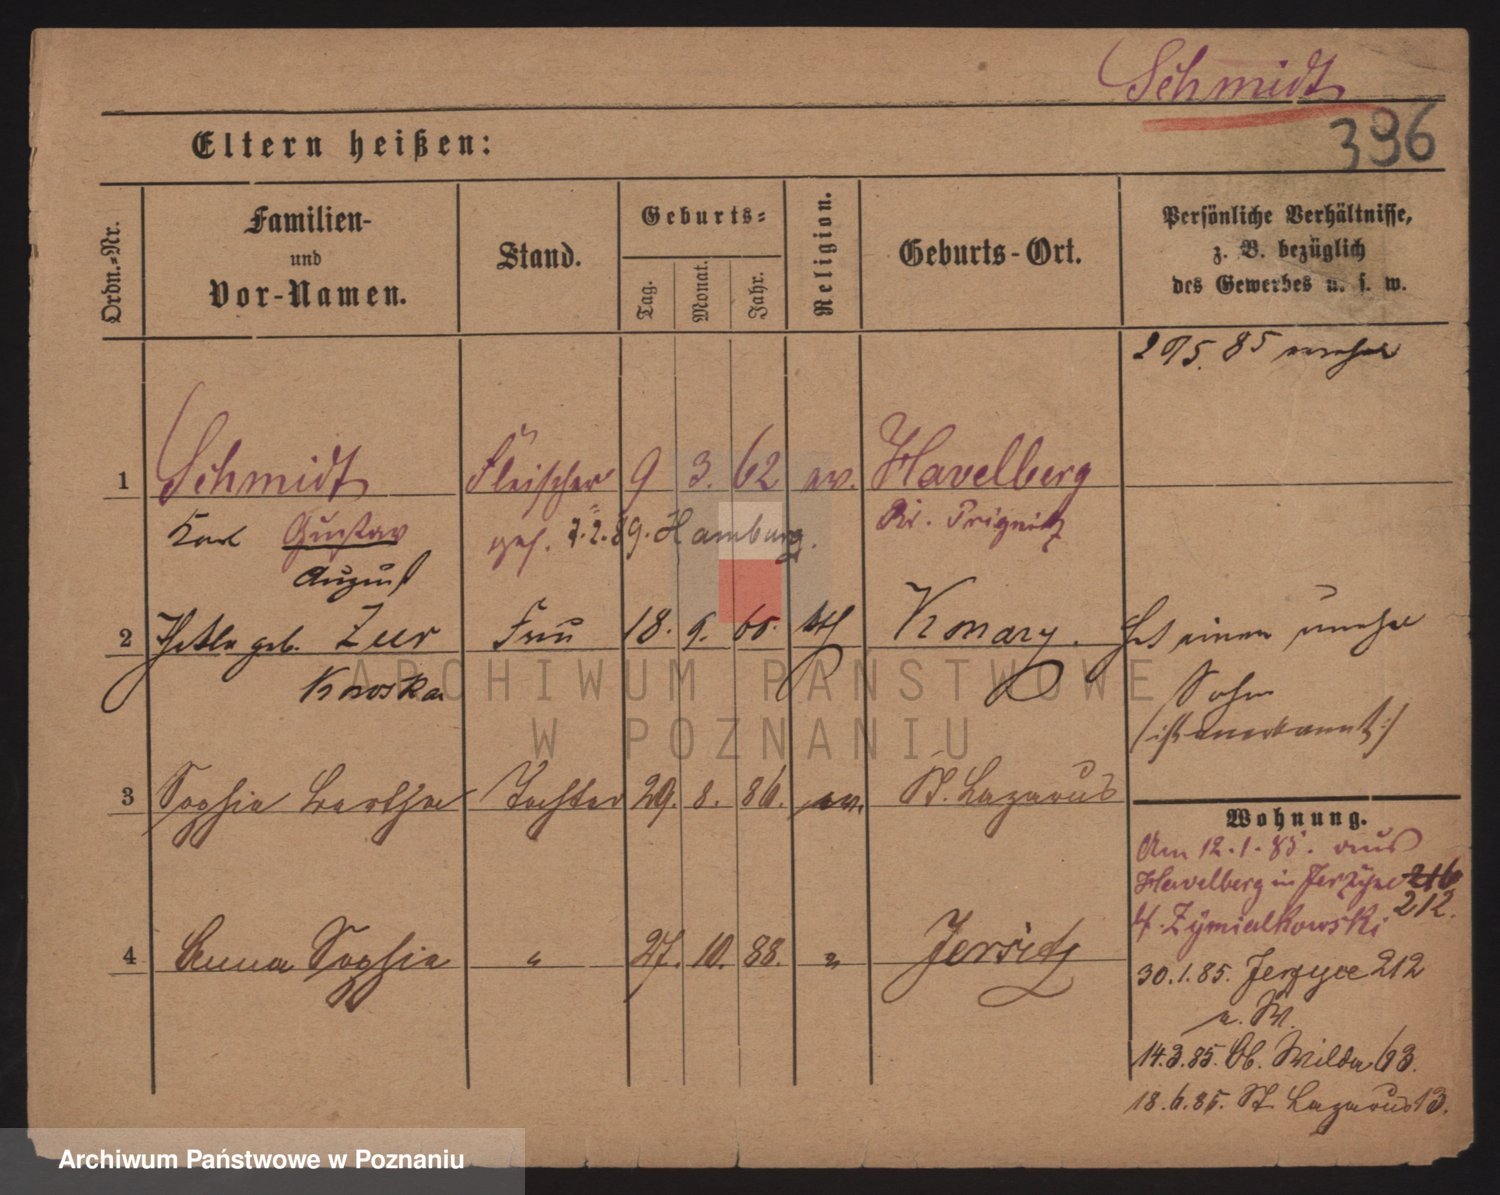 Schmidt
396
Eltern heißen:
Ordn.-Nr.
Familien-
und
Vor-Namen.
Stand.
Geburts-
Tag.
Monat.
Jahr.
Religion.
Geburts-Ort.
Persönliche Verhältnisse,
z. B. bezüglich
des Gewerbes u. s. w.
85
1 Schmidt Fleischer 9 3. 62 ev. Havelberg
Karl Gustav 7.2.89. Hamburg. Kr. Prignitz
August
2 geb. Frau 18. Konary. Hat einen
Sohn
(ist anerkannt)
3 Sophie Bertha Tochter 29. 8. 86. ev. St. Lazarus
4 Anna Sophie " 27. 10. 88. " Jersitz
Wohnung.
Am 12.1.85. aus
Havelberg in Jerzyce 216
212.
Zymialkowski
30.1.85. Jerzyce 212
14.3.85. Ob. Wilda 63.
18.6.85. St. Lazarus 13.
ARCHIWUM PAŃSTWOWE
W POZNANIU
Archiwum Państwowe w Poznaniu